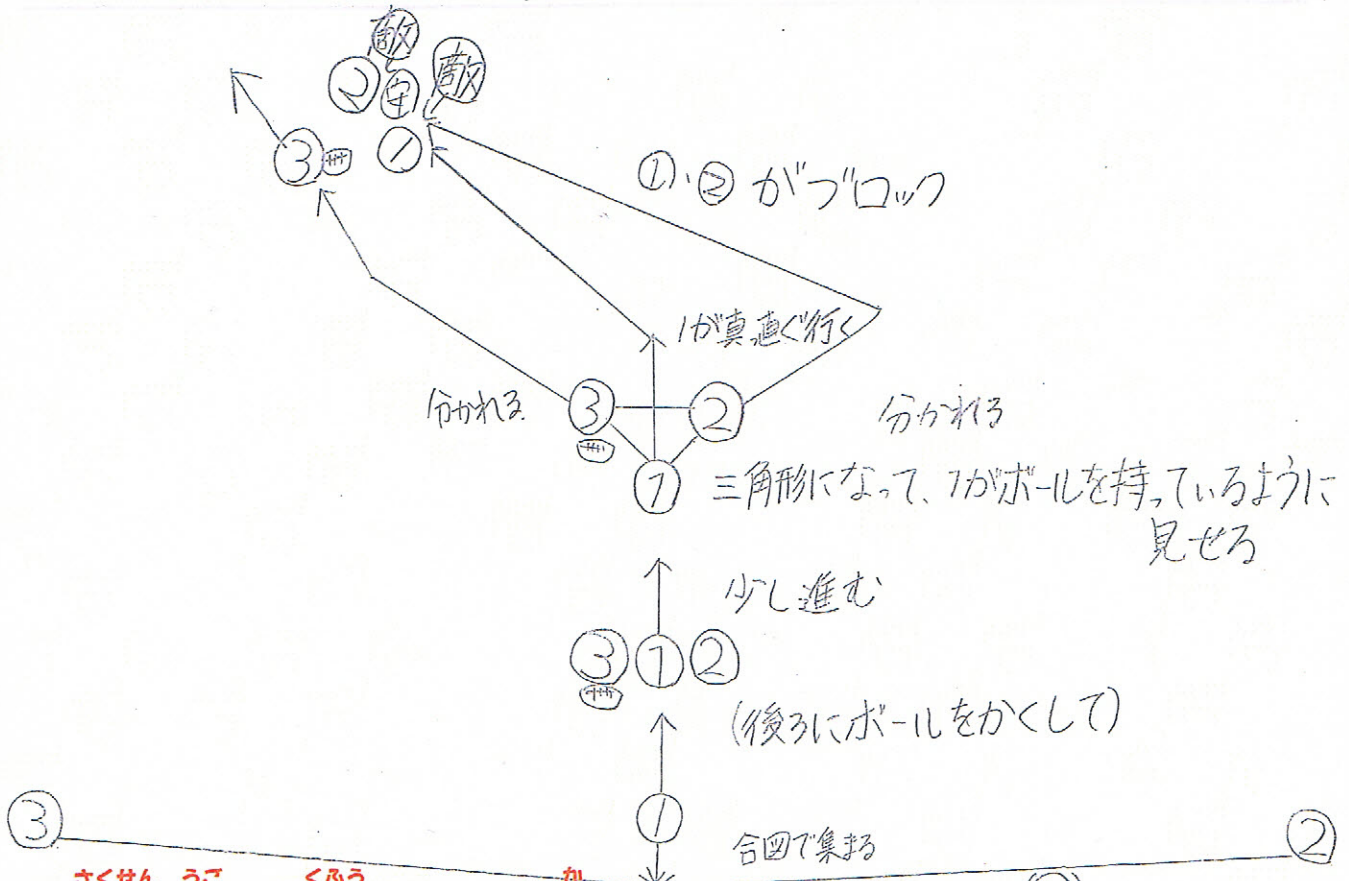 敵
② 守 敵
③ ①
①、②がブロック
1が真直ぐ行く
分かれる ③ ② 分かれる
① 三角形になって、1がボールを持っているように
見せる
少し進む
③ ① ②
(後ろにボールをかくして)
③ ① ②
合図で集まる
さくせん うご くふう か